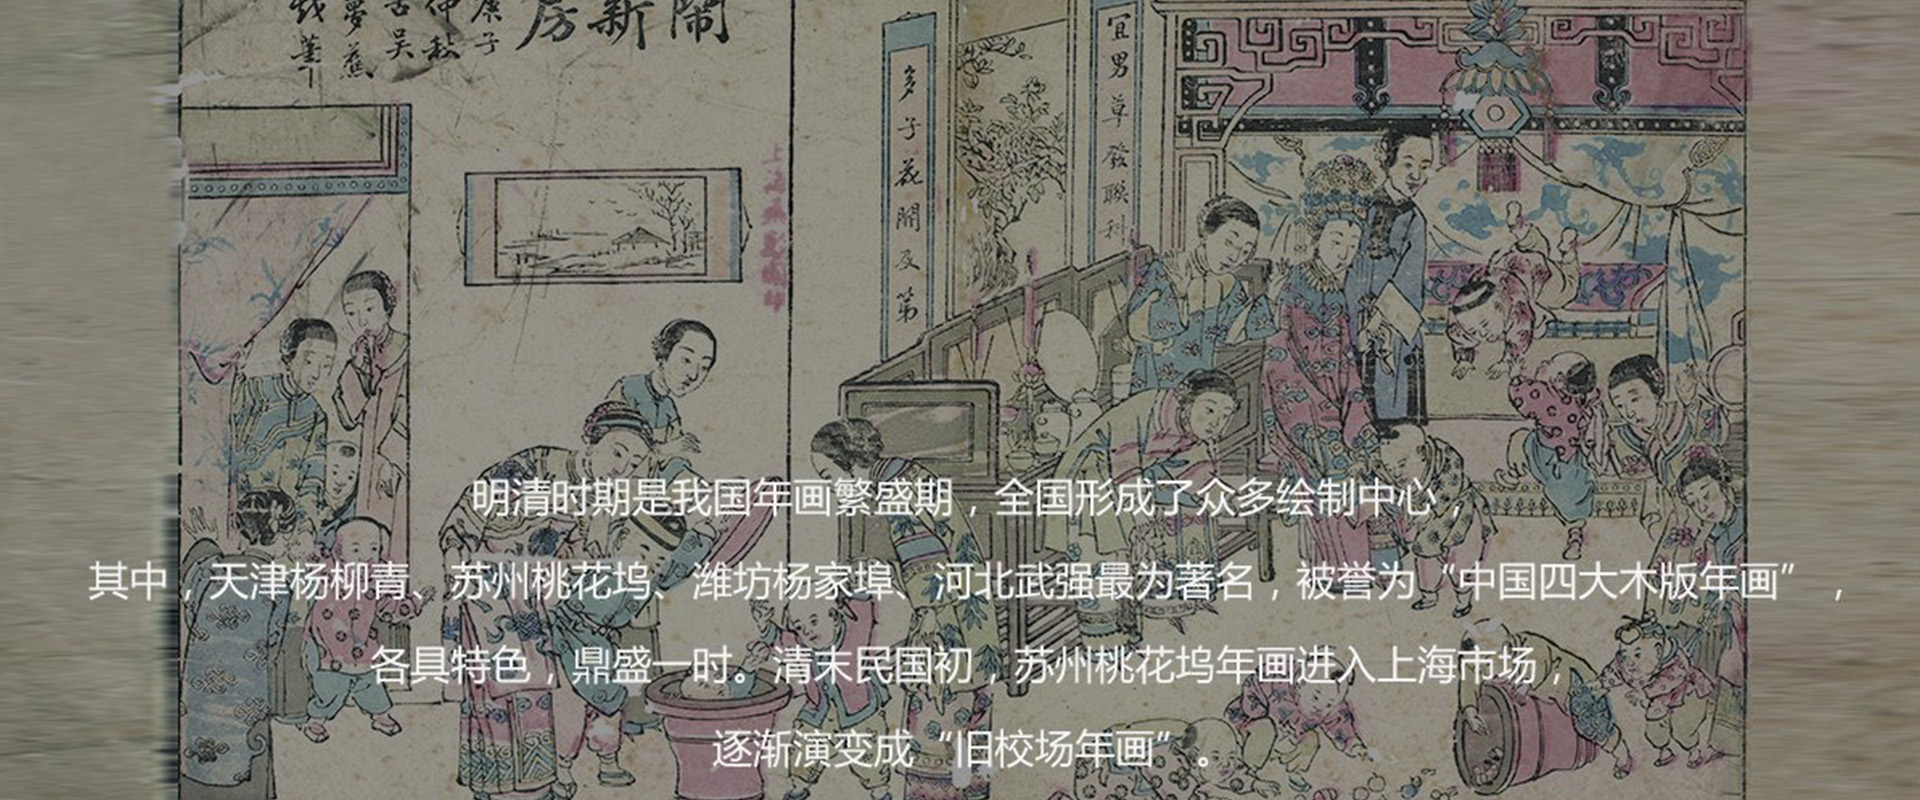 鬧新房
庚子
仲秋
吉吴
夢蕉
多子花開及第
宜男草發聯科
明清时期是我国年画繁盛期，全国形成了众多绘制中心，
其中，天津杨柳青、苏州桃花坞、潍坊杨家埠、河北武强最为著名，被誉为“中国四大木版年画”，
各具特色，鼎盛一时。清末民国初，苏州桃花坞年画进入上海市场，
逐渐演变成“旧校场年画”。